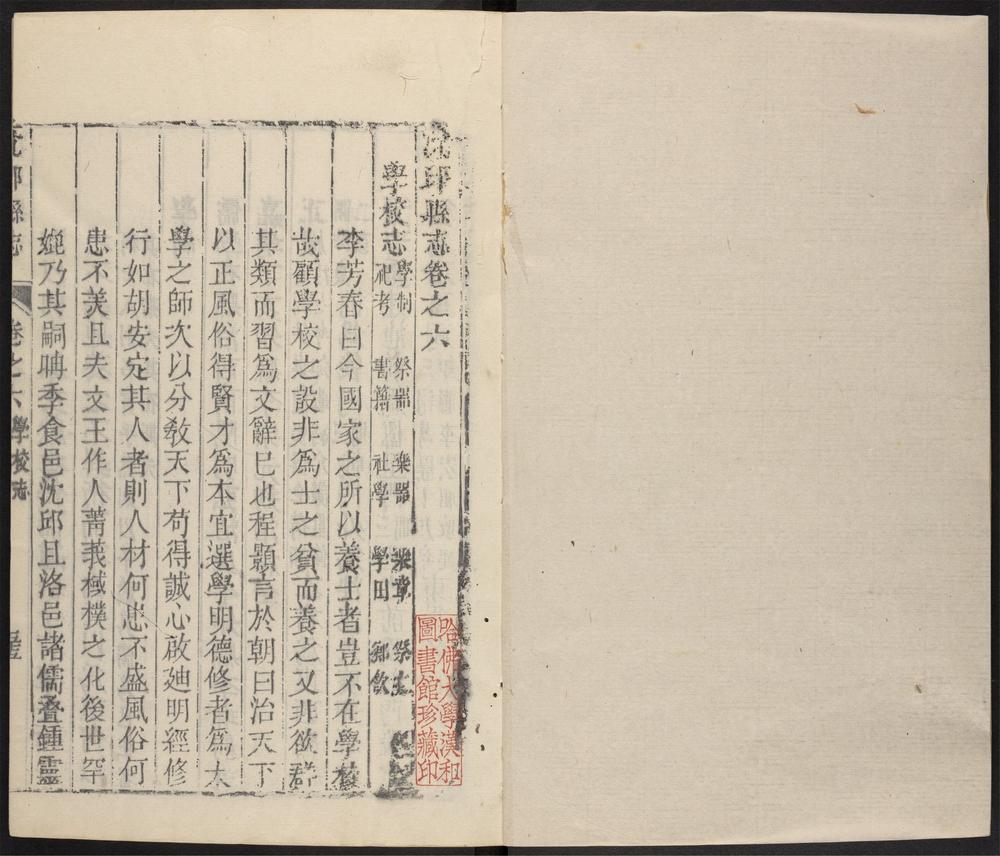 沈邱縣志卷之六
學校志 學制 祭器 樂器 樂章 祭
祀考 書籍 社學 學田 鄉飲
李芳春曰今國家之所以養士者豈不在學校
哉顧學校之設非爲士之貧而養之又非欲群
其類而習爲文辭已也程顥言於朝曰治天下
以正風俗得賢才爲本宜選學明德修者爲大
學之師次以分敎天下苟得誠心啟廸明經修
行如胡安定其人者則人材何患不盛風俗何
患不美且夫文王作人菁莪棫樸之化後世罕
媲乃其嗣聃季食邑沈邱且洛邑諸儒叠鍾靈
沈邱縣志 卷之六 學校志
哈佛大學漢和
圖書館珍藏印